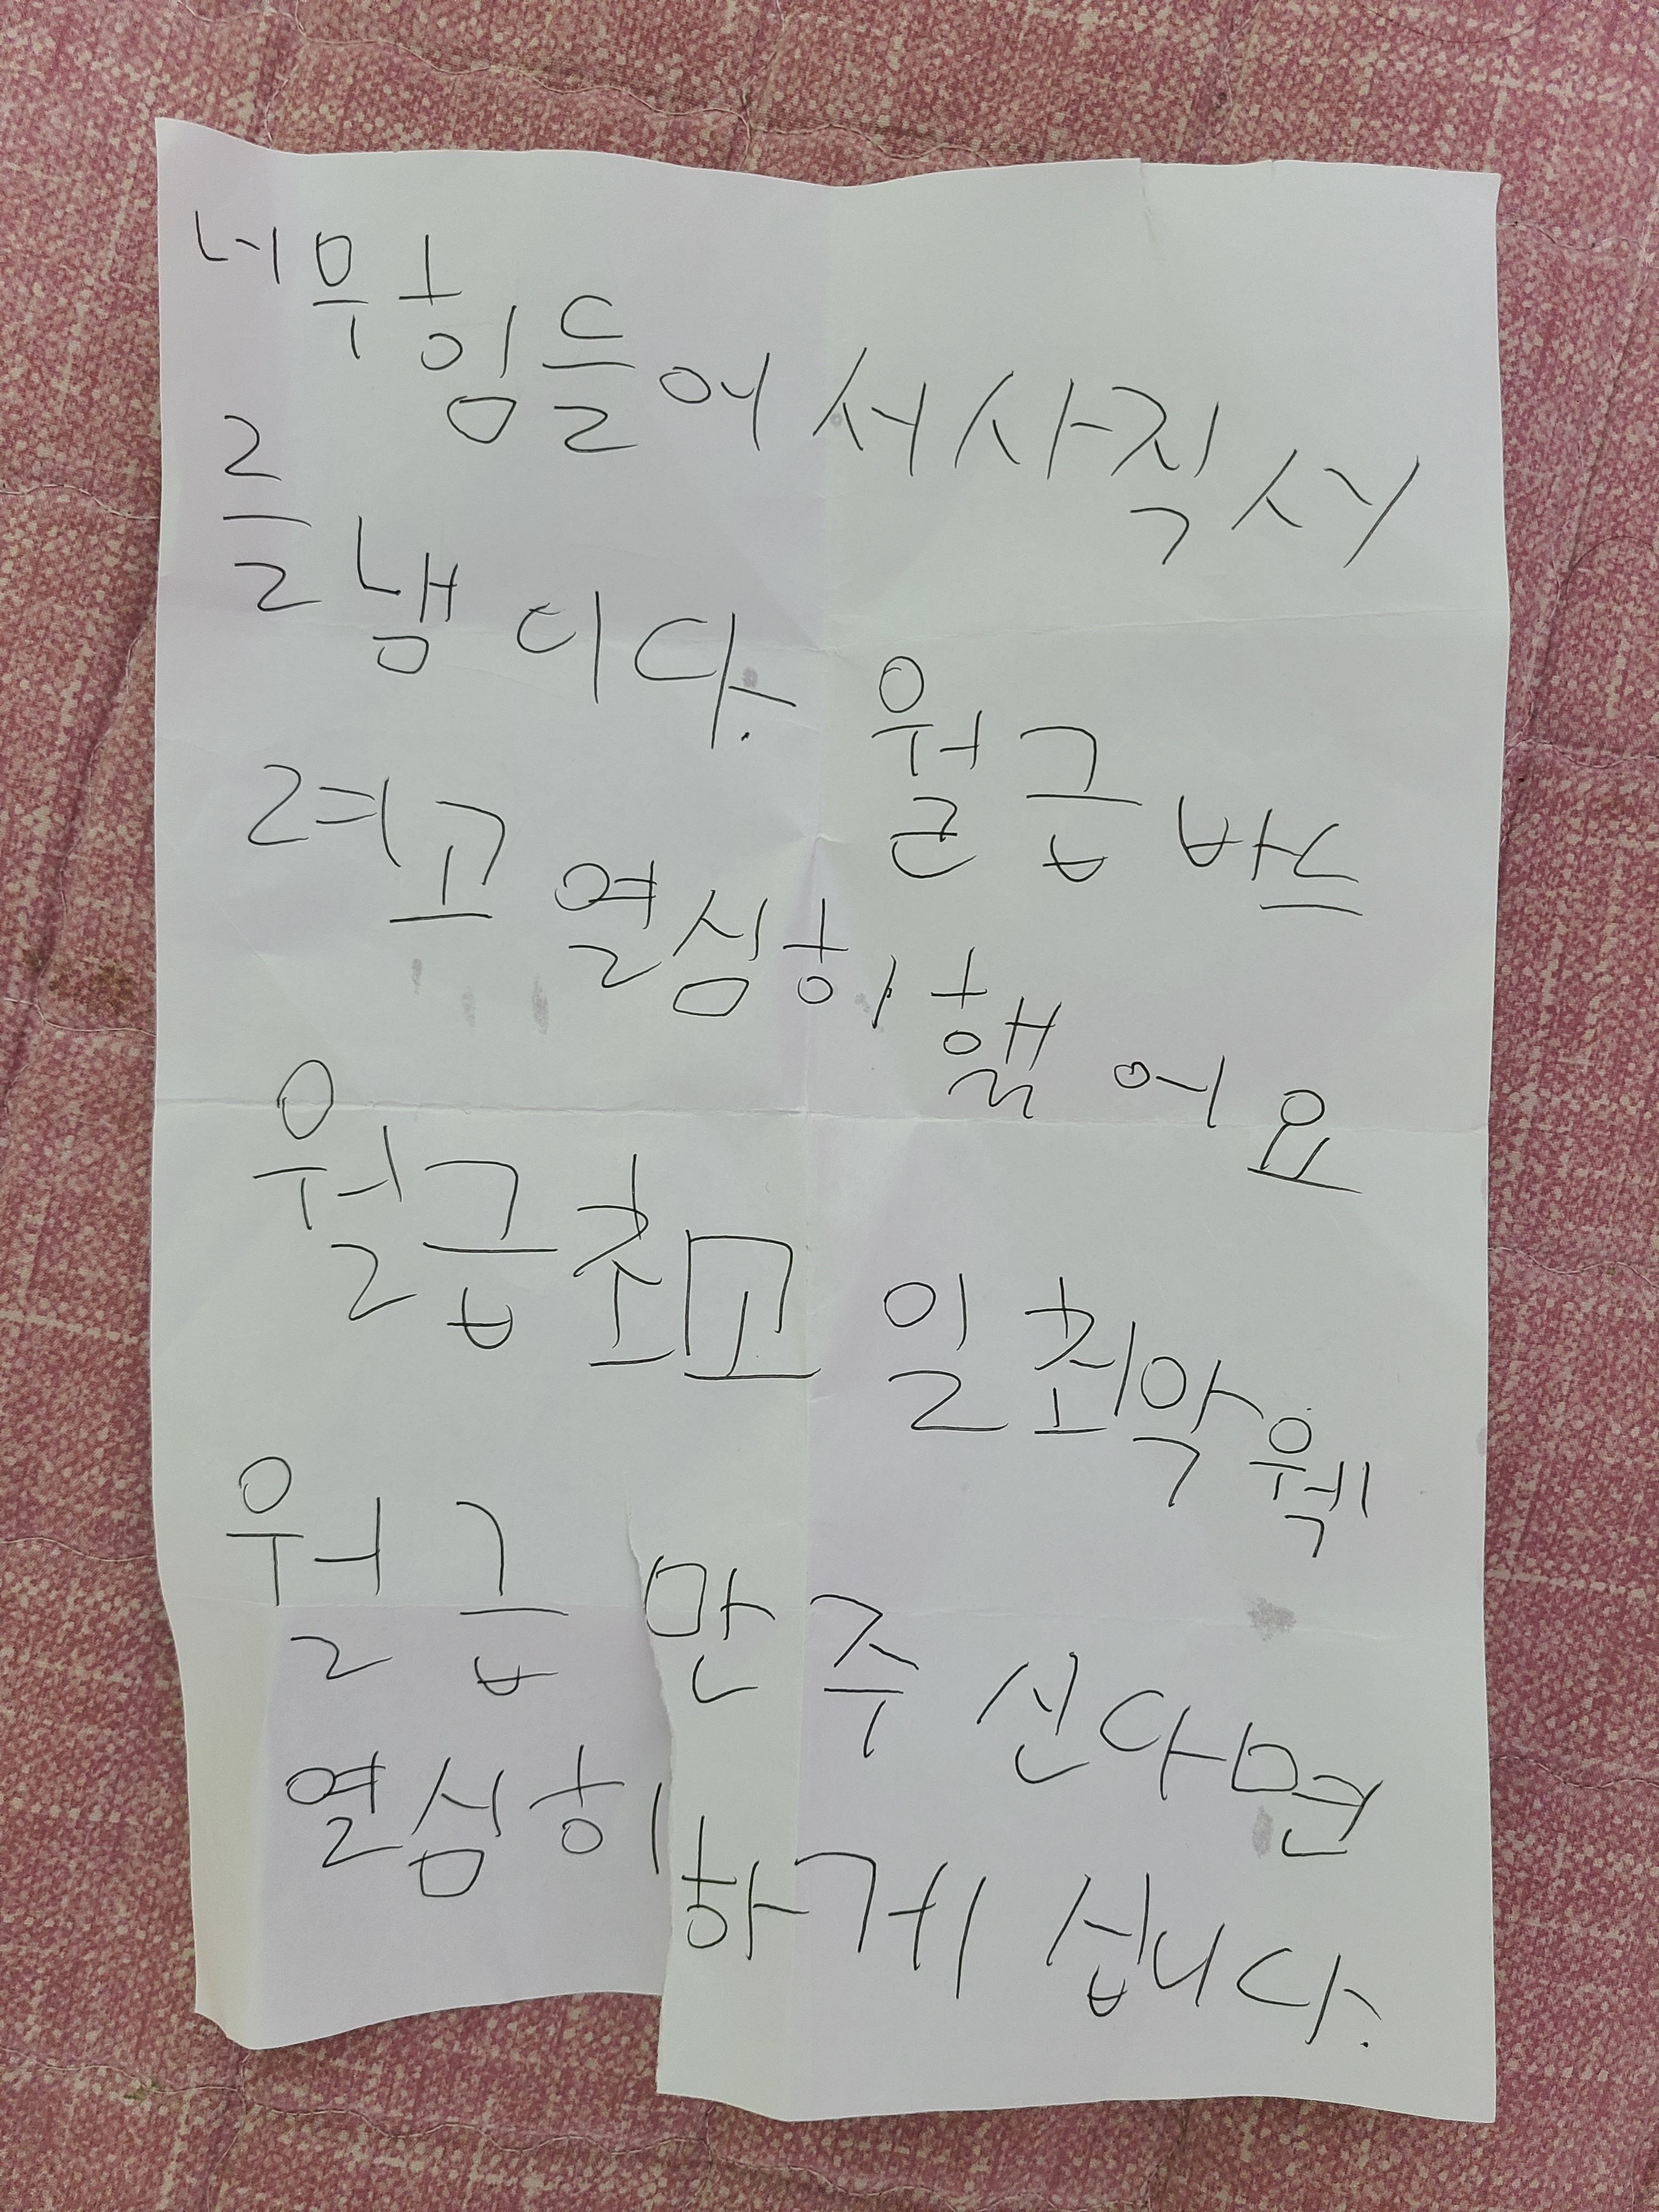 너무힘들어서사직서
를냄이다.
월급바드
려고 열심히 했어요
월급최고 일최악웩
월급만주신다면
열심히하게십니다.